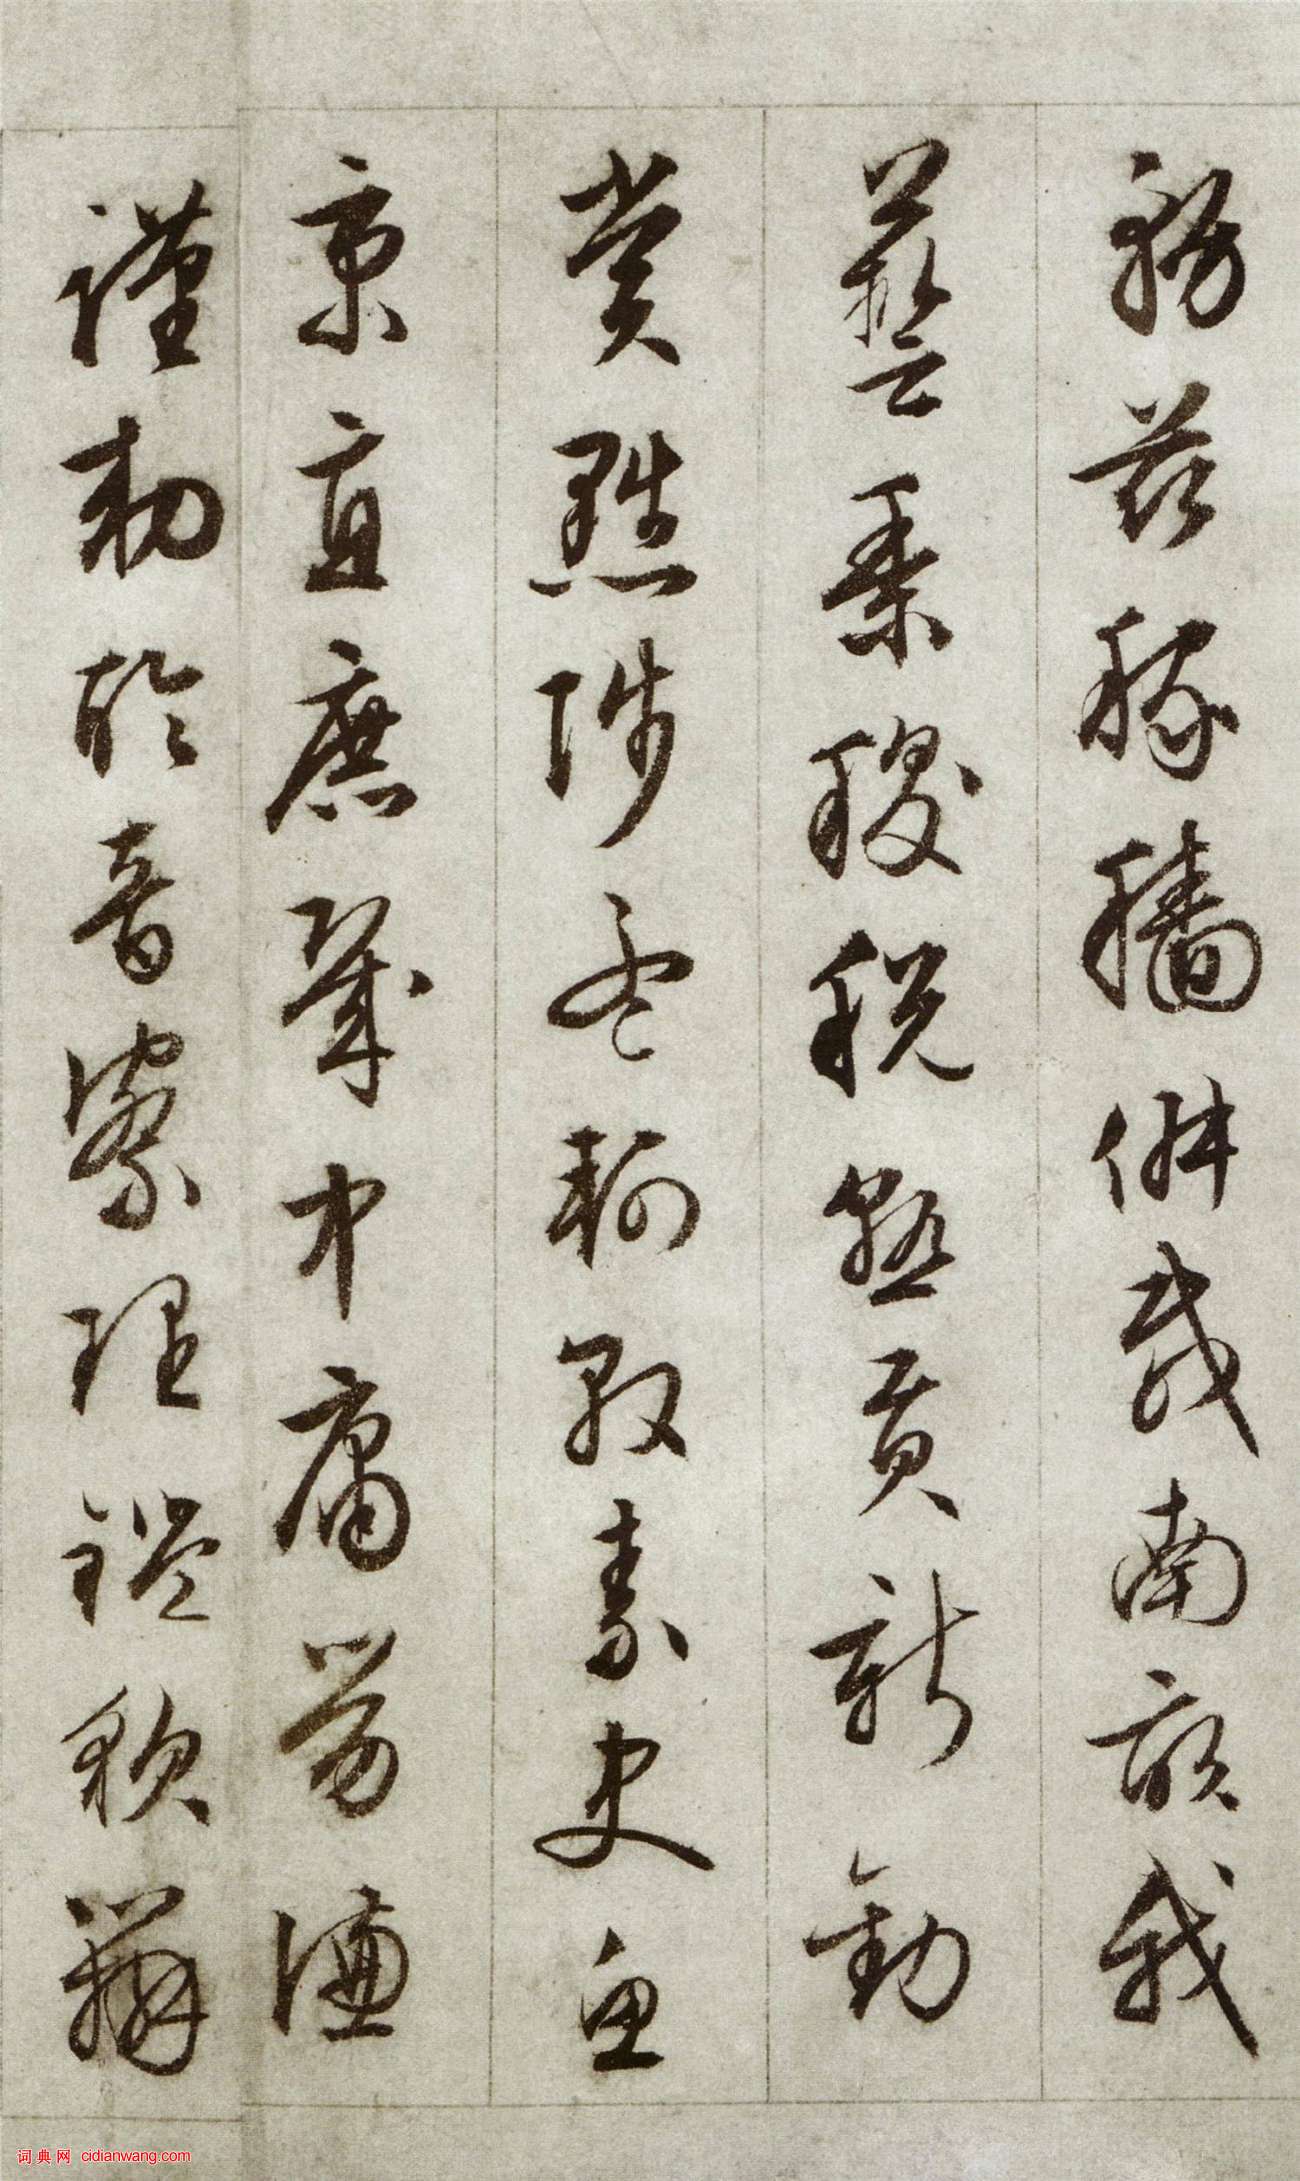 務茲稼穡俶載南畝我
藝黍稷稅熟貢新勸
賞黜陟孟軻敦素史魚
秉直庶幾中庸勞謙
謹勅聆音察理鑑貌辨
词典网 cidianwang.com